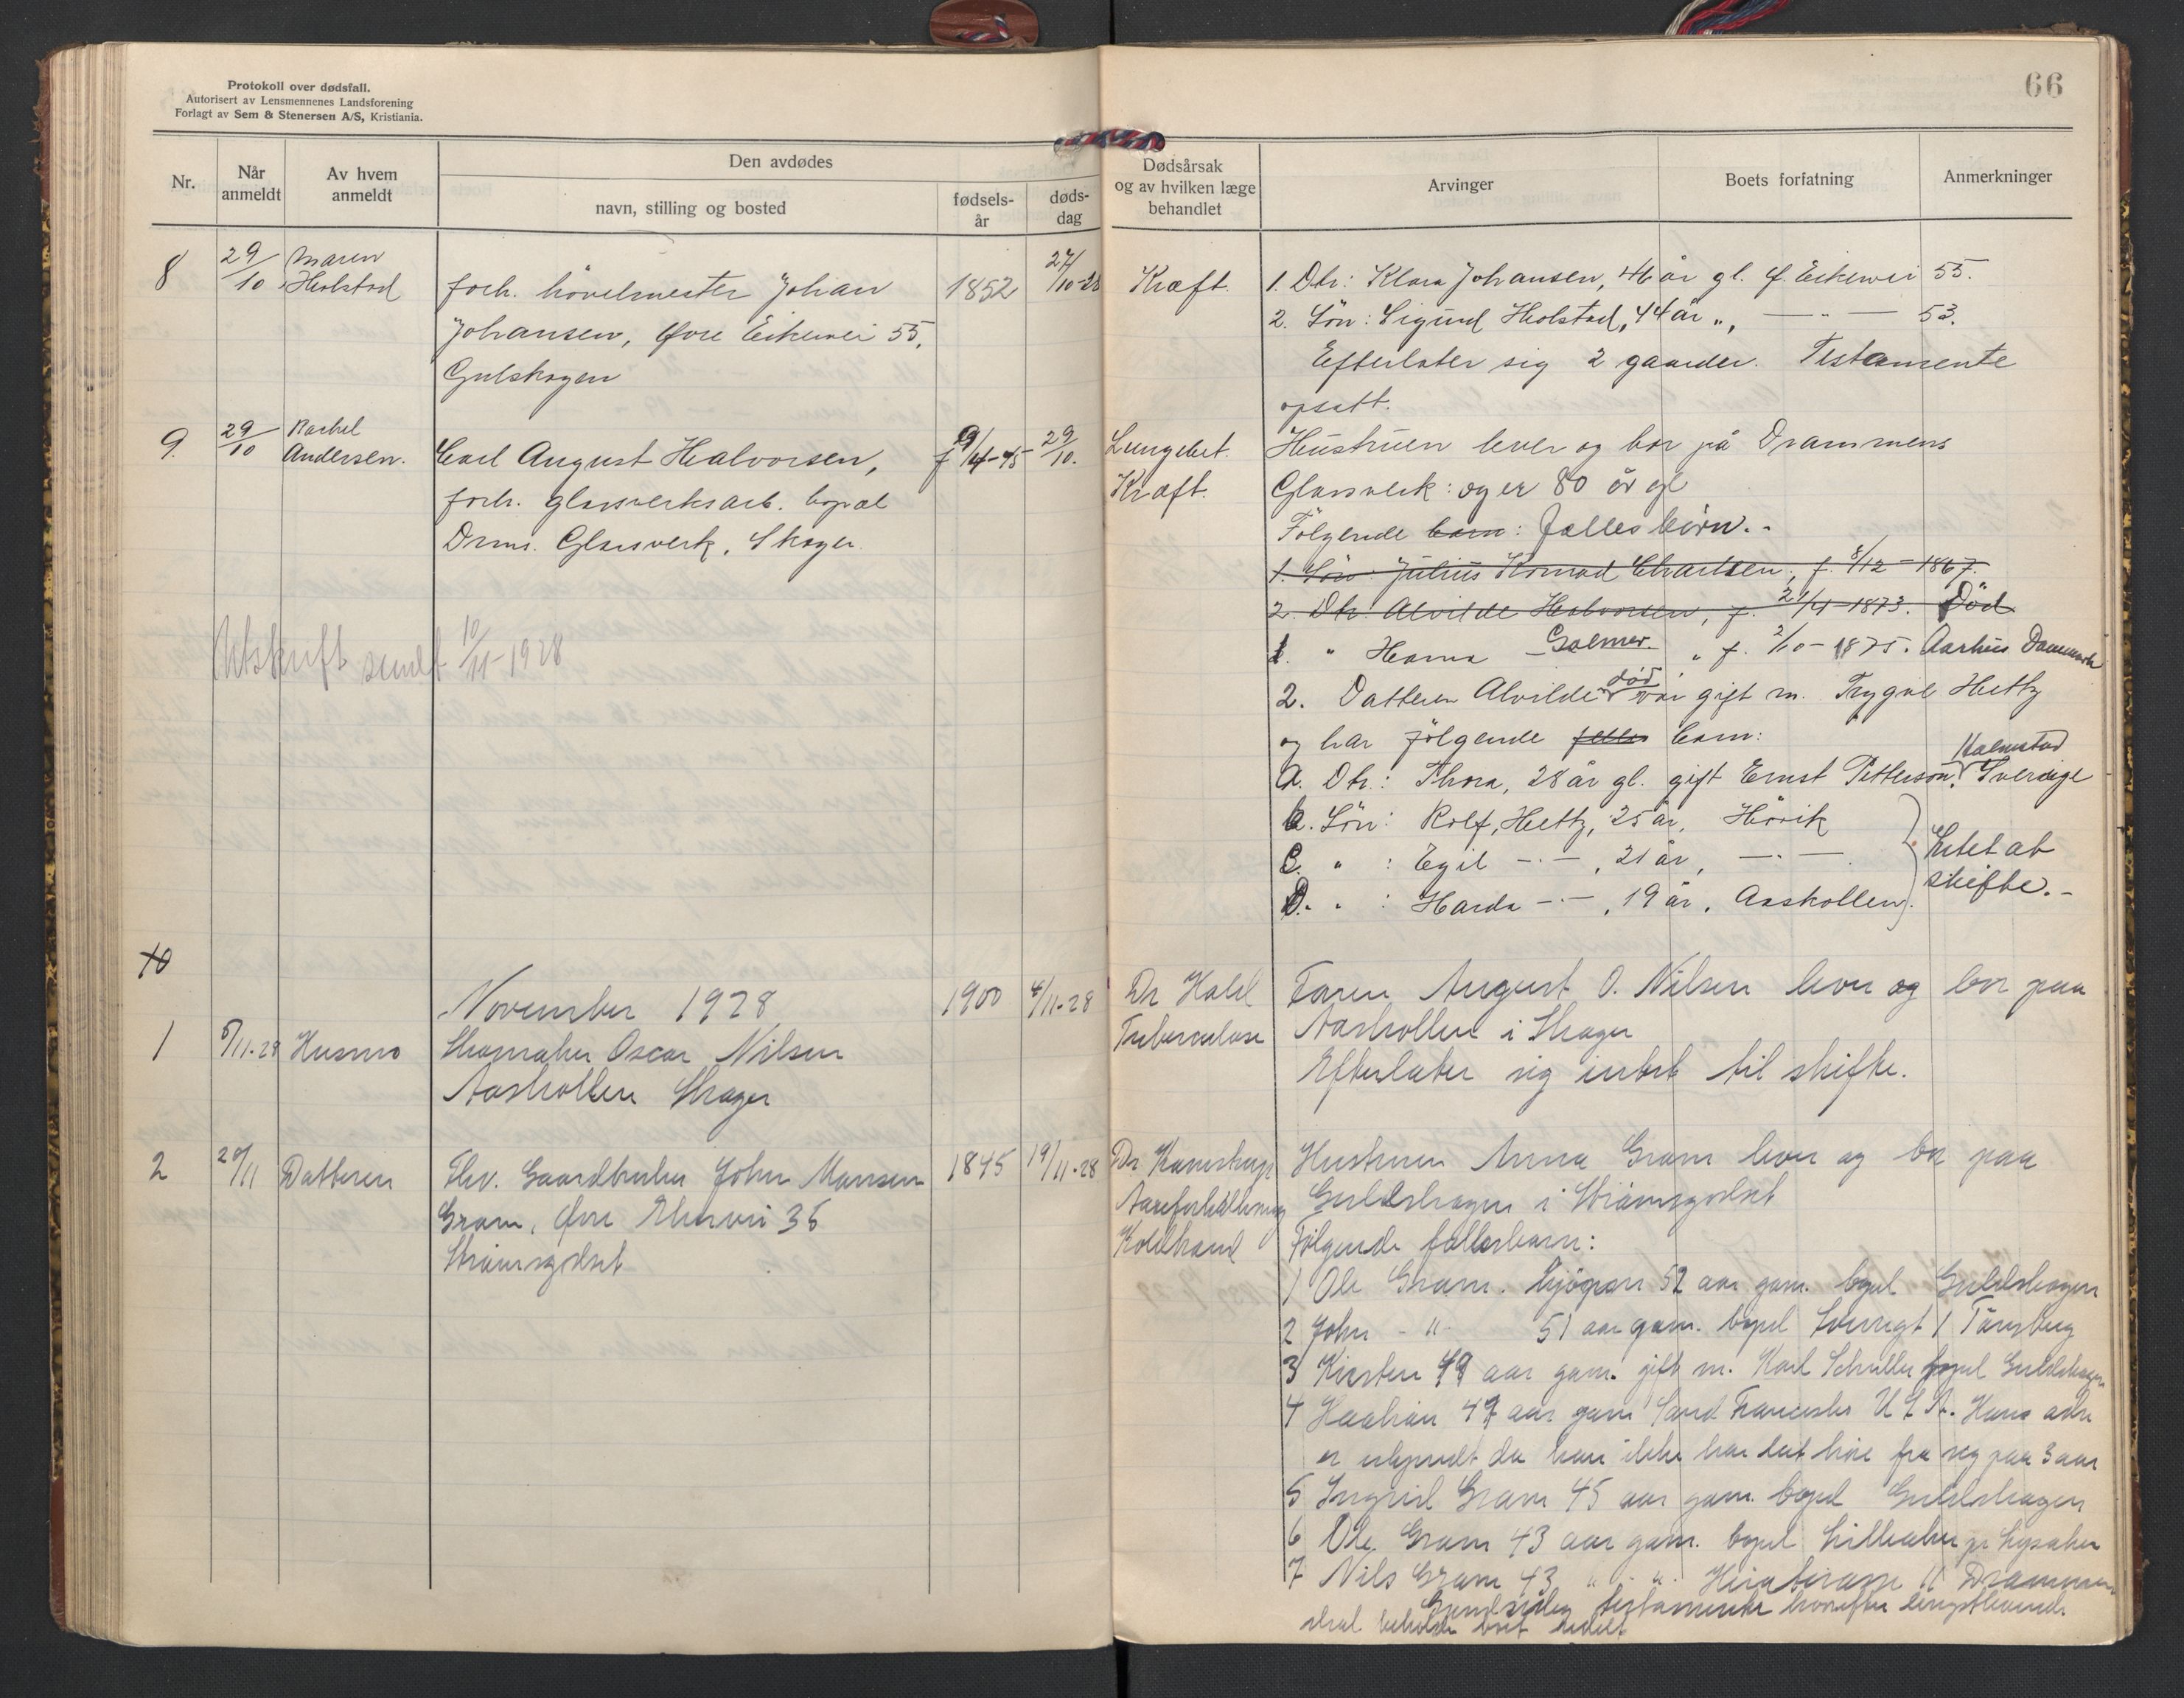 66
Protokoll over dødsfall.
Autorisert av Lensmennenes Landsforening
Forlagt av Sem & Stenersen A/S, Kristiania.
Nr.
Når anmeldt
Av hvem anmeldt
Den avdødes
navn, stilling og bosted
fødsels-år
døds-dag
Dødsårsak og av hvilken læge behandlet
Arvinger
Boets forfatning
Anmerkninger
8
29/10
Maren
Holstad
forh. hövelmester Johan
Johansen, Øvre Eikervei 55,
Gulskogen
1852
27/10-28
Kræft.
1. Dtr: Klara Johansen, 46 år gl. Ø. Eikervei 55.
2. Sön: Sigurd Holstad, 44 år „, — „ — 53.
Efterlater sig 2 gaarder. Testamente
opsatt.
9.
29/10
Rachel
Andersen.
Carl August Halvorsen,
forh. glassverksarb. bopæl
Drms. Glassverk, Skoger.
f 9/4-45
29/10.
Lungebet.
Kræft.
Hustruen lever og bor på Drammens
Glassverk: og er 80 år gl
Følgende barn: fælles börn.-
1. Sön: Julius Konrad Charlsen, f. 8/12-1867.
2. Dtr. Alvilde Halvorsen, f. 21/4-1873. Död
1. " Hanna Galmer. „ f. 2/10-1875. Aarhus Danmark
2. Datteren Alvilde död var gift m. Trygve Heltz
og har følgende felles barn:
A. Dtr.: Thora, 28 år gl. gift Ernst Petterson, Halmstad Sverige
b. Sön: Rolf, Heltz, 25 år, Hörik
C. " : Egil -·-, 21 år, -·-
D. " : Harda -·-, 19 år, Aaskollen.
Intet at
skifte.-
Utskrift sendt 10/11-1928
10
November 1928
1
5/11-28
Husmo
Skomaker Oscar Nilsen
Aaskollen Skoger
1900
4/11-28
Dr Hald
Tuberculose
Faren August O. Nilsen lever og bor paa
Aaskollen i Skoger
Efterlater sig intet til skifte.
2
20/11
Datteren
Fhv. Gaardbruker John Hansen
Gram, Øvre Eikervei 36
Strømsgodset
1845
19/11-28
Dr Kamstrup
Aareforkalkning
Koldbrand
Hustruen Anna Gram lever og bor paa
Guldskogen i Strømsgodset
Følgende fællesbarn:
1 Ole Gram. Skjöpar 52 aar gam. bopel Guldskogen
2 John - " - 51 aar gam. bopel Tönsberg
3 Kirsten 49 aar gam. gift m. Karl Schuller bopel Guldskogen
4 Haakon 47 aar gam Sand Francisko U.S.A. Hans adr
er ubekjendt da han ikke har latt höre fra seg paa 3 aar
5 Ingrid Gram 45 aar gam. bopel Guldskogen
6 Ole Gram 43 aar gam. bopel Lilleaker pr Lysaker
7 Nils Gram 43 " - " - 11 Drammen.
Gjensidig testamente hvorefter lengstlevende
skal beholde boet udelt